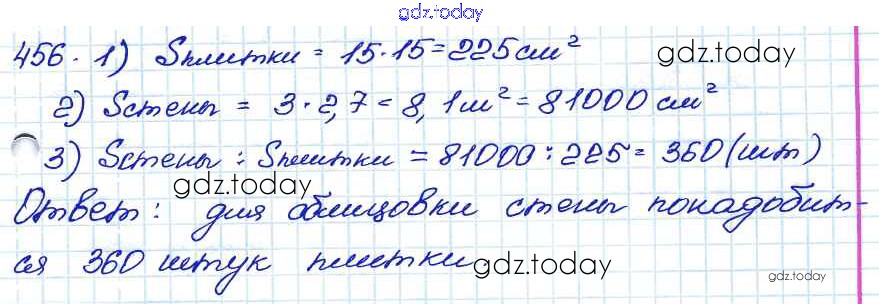 gdz.today
456. 1) Sплитки = 15·15=225см²
gdz.today
2) Sстены = 3·2,7=8,1м²=81000см²
3) Sстены : Sплитки = 81000:225= 360(шт)
gdz.today
Ответ: для облицовки стены понадобит-
ся 360 штук плитки.
gdz.today
gdz.today